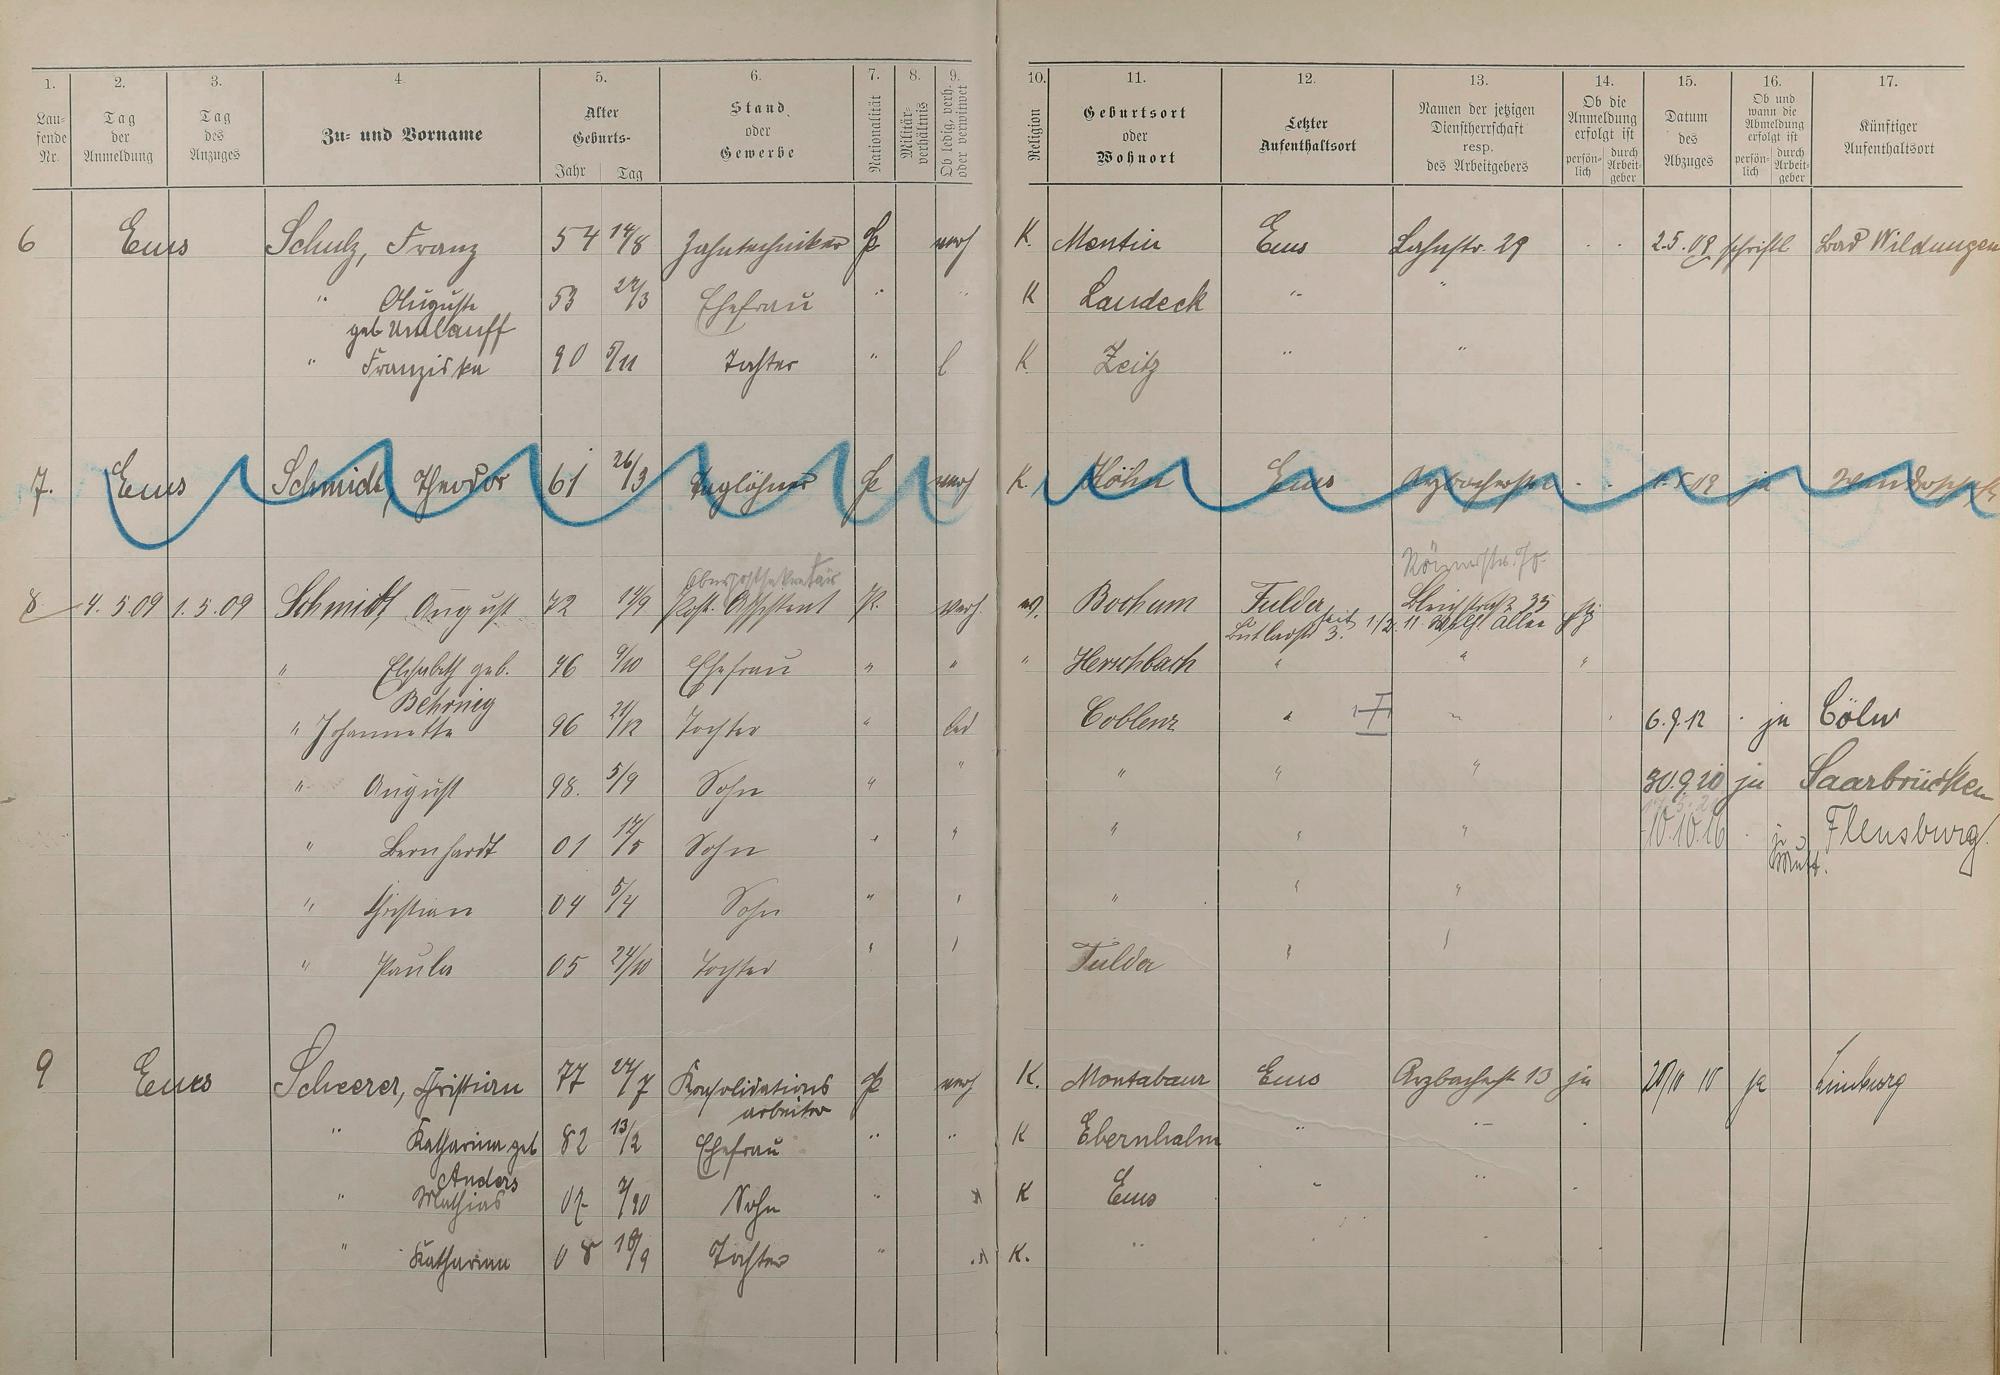 1. 2. 3. 4 5. 6. 7. 8. 9. 10. 11. 12. 13. 14. 15. 16. 17.
Lau-
fende
Nr.
Tag
der
Anmeldung
Tag
des
Anzuges
Zu- und Vorname
Alter
Geburts-
Jahr Tag
Stand
oder
Gewerbe
Nationalität
Militär-
verhältnis
Ob ledig, verh.
oder verwitwet
Religion
Geburtsort
oder
Wohnort
Letzter
Aufenthaltsort
Namen der jetzigen
Dienstherrschaft
resp.
des Arbeitgebers
Ob die
Anmeldung
erfolgt ist
persön-
lich
durch
Arbeit-
geber
Datum
des
Abzuges
Ob und
wann die
Abmeldung
erfolgt ist
persön-
lich
durch
Arbeit-
geber
Künftiger
Aufenthaltsort
6 Ems Schulz, Franz 54 14/8 Zahntechniker P verh K. Ems Lahnstr. 29 2.5.09 schriftl Bad Wildungen
" Auguste 53 Ehefrau " " K Landeck " "
geb Umlauff
" Franziska 90 5/11 Tochter " l K. Zeitz " "
7. Ems Schmidt, Theodor 61 26/3 Taglöhner P verh K. Höhn Ems Arzbacherstr. ja
8. 4.5.09 1.5.09 Schmidt August 72 14/9 Post. Assistent P. verh. Bochum Fulda Bleichstraße 35
Oberpostsekretär
Römerstr.
seit 11 Wilh. Allee
" Elisabeth geb. 76 9/10 Ehefrau " " " Herschbach " " "
" Johannette 96 21/12 Tochter " led Coblenz " " 6.9.12 ja Cöln
" August 98. 5/9 Sohn " " " " " 30.9.20 ja Saarbrücken
" Bernhardt 01 17/5 Sohn " " " " " 10.10.16 ja Flensburg
" Christian 04 5/4 Sohn " " " " "
" Paula 05 24/10 Tochter " " Fulda " "
9 Ems Scheerer, Christian 77 24/7 Konsolidations P verh K. Montabaur Ems Arzbacherstr 13 ja ja Limburg
arbeiter
" Katharina geb 82 13/2 Ehefrau " " K Ebernhahn " "
Anders
" Mathias 07 Sohn " K K Ems " "
" Katharina 08 Tochter " K. K. " "